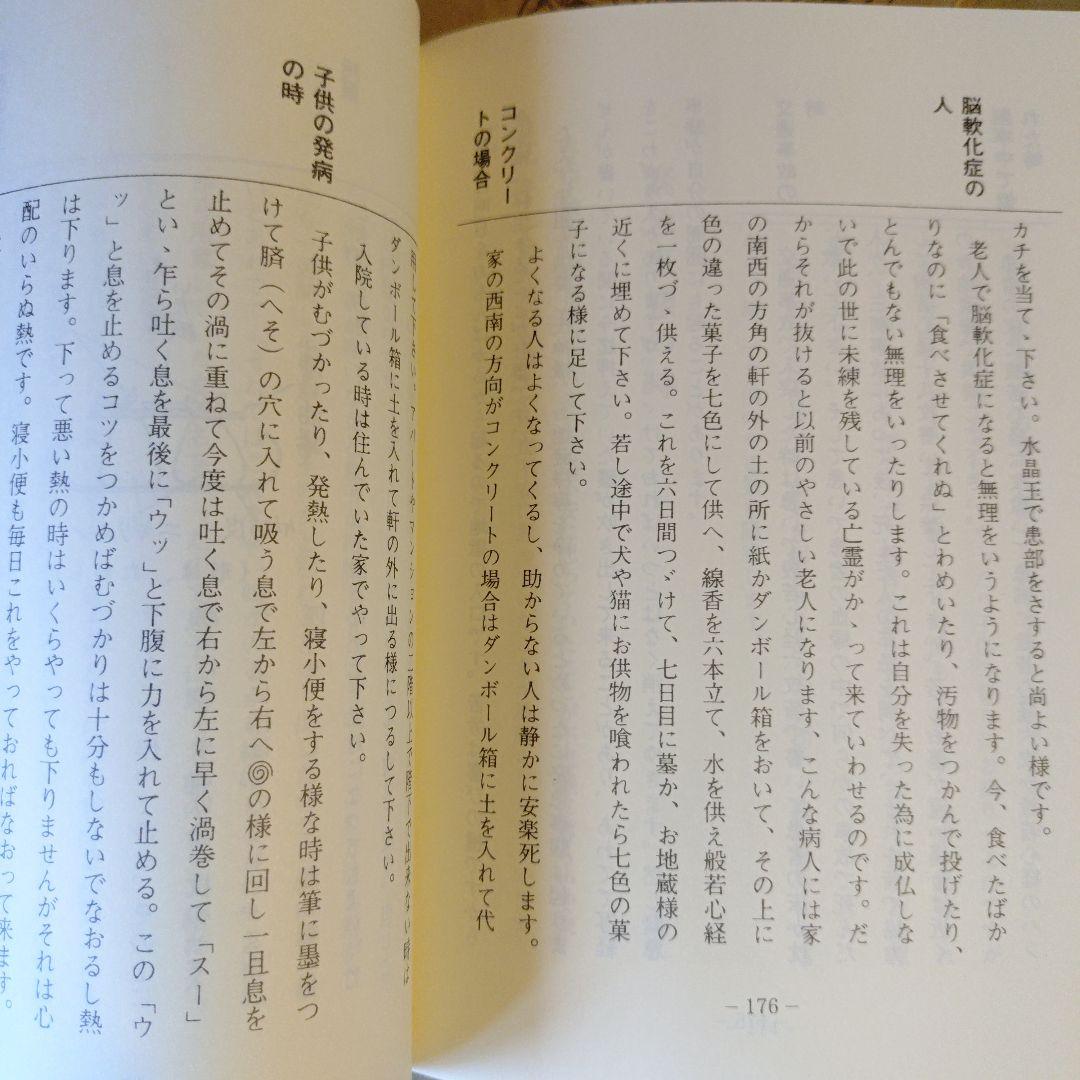 脳軟化症の
人
カチを当てゝ下さい。水晶玉で患部をさすると尚よい様です。
老人で脳軟化症になると無理をいうようになります。今、食べたばか
りなのに「食べさせてくれぬ」とわめいたり、汚物をつかんで投げたり、
とんでもない無理をいったりします。これは自分を失った為に成仏しな
いで此の世に未練を残している亡霊がかゝって来ていわせるのです。だ
からそれが抜けると以前のやさしい老人になります、こんな病人には家
の南西の方角の軒の外の土の所に紙かダンボール箱をおいて、その上に
色の違った菓子を七色にして供へ、線香を六本立て、水を供え般若心経
を一枚づゝ供える。これを六日間つゞけて、七日目に墓か、お地蔵様の
近くに埋めて下さい。若し途中で犬や猫にお供物を喰われたら七色の菓
子になる様に足して下さい。
よくなる人はよくなってくるし、助からない人は静かに安楽死します。
コンクリー
トの場合
家の西南の方向がコンクリートの場合はダンボール箱に土を入れて代
－176－
用して下さい。アパートやマンションの二階以上で階下で出来ない時は
ダンボール箱に土を入れて軒の外に出る様につるして下さい。
入院している時は住んでいた家でやって下さい。
子供の発病
の時
子供がむづかったり、発熱したり、寝小便をする様な時は筆に墨をつ
けて臍（へそ）の穴に入れて吸う息で左から右への様に回し一旦息を
止めてその渦に重ねて今度は吐く息で右から左に早く渦巻して「スー」
といゝ乍ら吐く息を最後に「ウッ」と下腹に力を入れて止める。この「ウ
ッ」と息を止めるコツをつかめばむづかりは十分もしないでなおるし熱
は下ります。下って悪い熱の時はいくらやっても下りませんがそれは心
配のいらぬ熱です。寝小便も毎日これをやっておればなおって来ます。